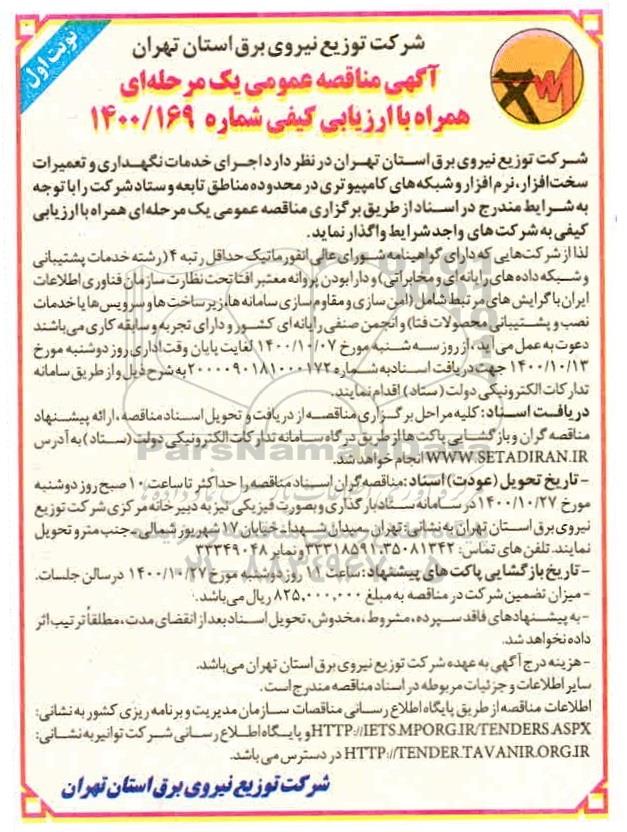 نوبت اول
شرکت توزیع نیروی برق استان تهران
آگهی مناقصه عمومی یک مرحله‌ای
همراه با ارزیابی کیفی شماره ۱۴۰۰/۱۶۹
شرکت توزیع نیروی برق استان تهران در نظر دارد اجرای خدمات نگهداری و تعمیرات
سخت‌افزار، نرم‌افزار و شبکه‌های کامپیوتری در محدوده مناطق تابعه و ستاد شرکت را با توجه
به شرایط مندرج در اسناد از طریق برگزاری مناقصه عمومی یک مرحله‌ای همراه با ارزیابی
کیفی به شرکت‌های واجد شرایط واگذار نماید.
لذا از شرکت‌هایی که دارای گواهینامه شورای عالی انفورماتیک حداقل رتبه ۴ (رشته خدمات پشتیبانی
و شبکه داده‌های رایانه‌ای و مخابراتی) و دارا بودن پروانه معتبر افتا تحت نظارت سازمان فناوری اطلاعات
ایران با گرایش‌های مرتبط شامل (امن سازی و مقاوم سازی سامانه‌ها، زیرساخت‌ها و سرویس‌ها یا خدمات
نصب و پشتیبانی محصولات فتا) و انجمن صنفی رایانه‌ای کشور و دارای تجربه و سابقه کاری می‌باشند
دعوت به عمل می‌آید، از روز سه شنبه مورخ ۱۴۰۰/۱۰/۰۷ لغایت پایان وقت اداری روز دوشنبه مورخ
۱۴۰۰/۱۰/۱۳ جهت دریافت اسناد به شماره ۲۰۰۰۰۹۰۱۸۱۰۰۰۱۷۲ به شرح ذیل و از طریق سامانه
تدارکات الکترونیکی دولت (ستاد) اقدام نمایند.
دریافت اسناد: کلیه مراحل برگزاری مناقصه از دریافت و تحویل اسناد مناقصه، ارائه پیشنهاد
مناقصه گران و بازگشایی پاکت‌ها از طریق درگاه سامانه تدارکات الکترونیکی دولت (ستاد) به آدرس
WWW.SETADIRAN.IR انجام خواهد شد.
- تاریخ تحویل (عودت) اسناد: مناقصه گران اسناد مناقصه را حداکثر تا ساعت ۱۰ صبح روز دوشنبه
مورخ ۱۴۰۰/۱۰/۲۷ در سامانه ستاد بارگذاری و بصورت فیزیکی نیز به دبیرخانه مرکزی شرکت توزیع
نیروی برق استان تهران به نشانی: تهران، میدان شهدا، خیابان ۱۷ شهریور شمالی، جنب مترو تحویل
نمایند. تلفن های تماس: ۳۵۰۸۱۳۴۲، ۳۳۳۱۸۵۹۱ و نمابر ۳۳۳۴۹۰۴۸
- تاریخ بازگشایی پاکت های پیشنهاد: ساعت ۱۱ روز دوشنبه مورخ ۱۴۰۰/۱۰/۲۷ در سالن جلسات.
- میزان تضمین شرکت در مناقصه به مبلغ ۸۲۵,۰۰۰,۰۰۰ ریال می‌باشد.
- به پیشنهادهای فاقد سپرده، مشروط، مخدوش، تحویل اسناد بعد از انقضای مدت، مطلقاً ترتیب اثر
داده نخواهد شد.
- هزینه درج آگهی به عهده شرکت توزیع نیروی برق استان تهران می‌باشد.
سایر اطلاعات و جزئیات مربوطه در اسناد مناقصه مندرج است.
اطلاعات مناقصه از طریق پایگاه اطلاع رسانی مناقصات سازمان مدیریت و برنامه ریزی کشور به نشانی:
HTTP://IETS.MPORG.IR/TENDERS.ASPX و پایگاه اطلاع رسانی شرکت توانیر به نشانی:
HTTP://TENDER.TAVANIR.ORG.IR در دسترس می باشد.
شرکت توزیع نیروی برق استان تهران